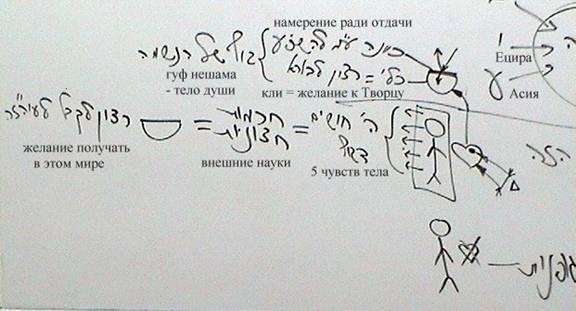 намерение ради отдачи
כוונה ע"מ להשפיע
גוף של הנשמה
гуф нешама
- тело души
כלי = רצון לבורא
кли = желание к Творцу
Ецира
י
Асия
ה' חושים
דגוף
=
חכמות
חצוניות
=
רצון לקבל
желание получать
в этом мире
внешние науки
5 чувств тела